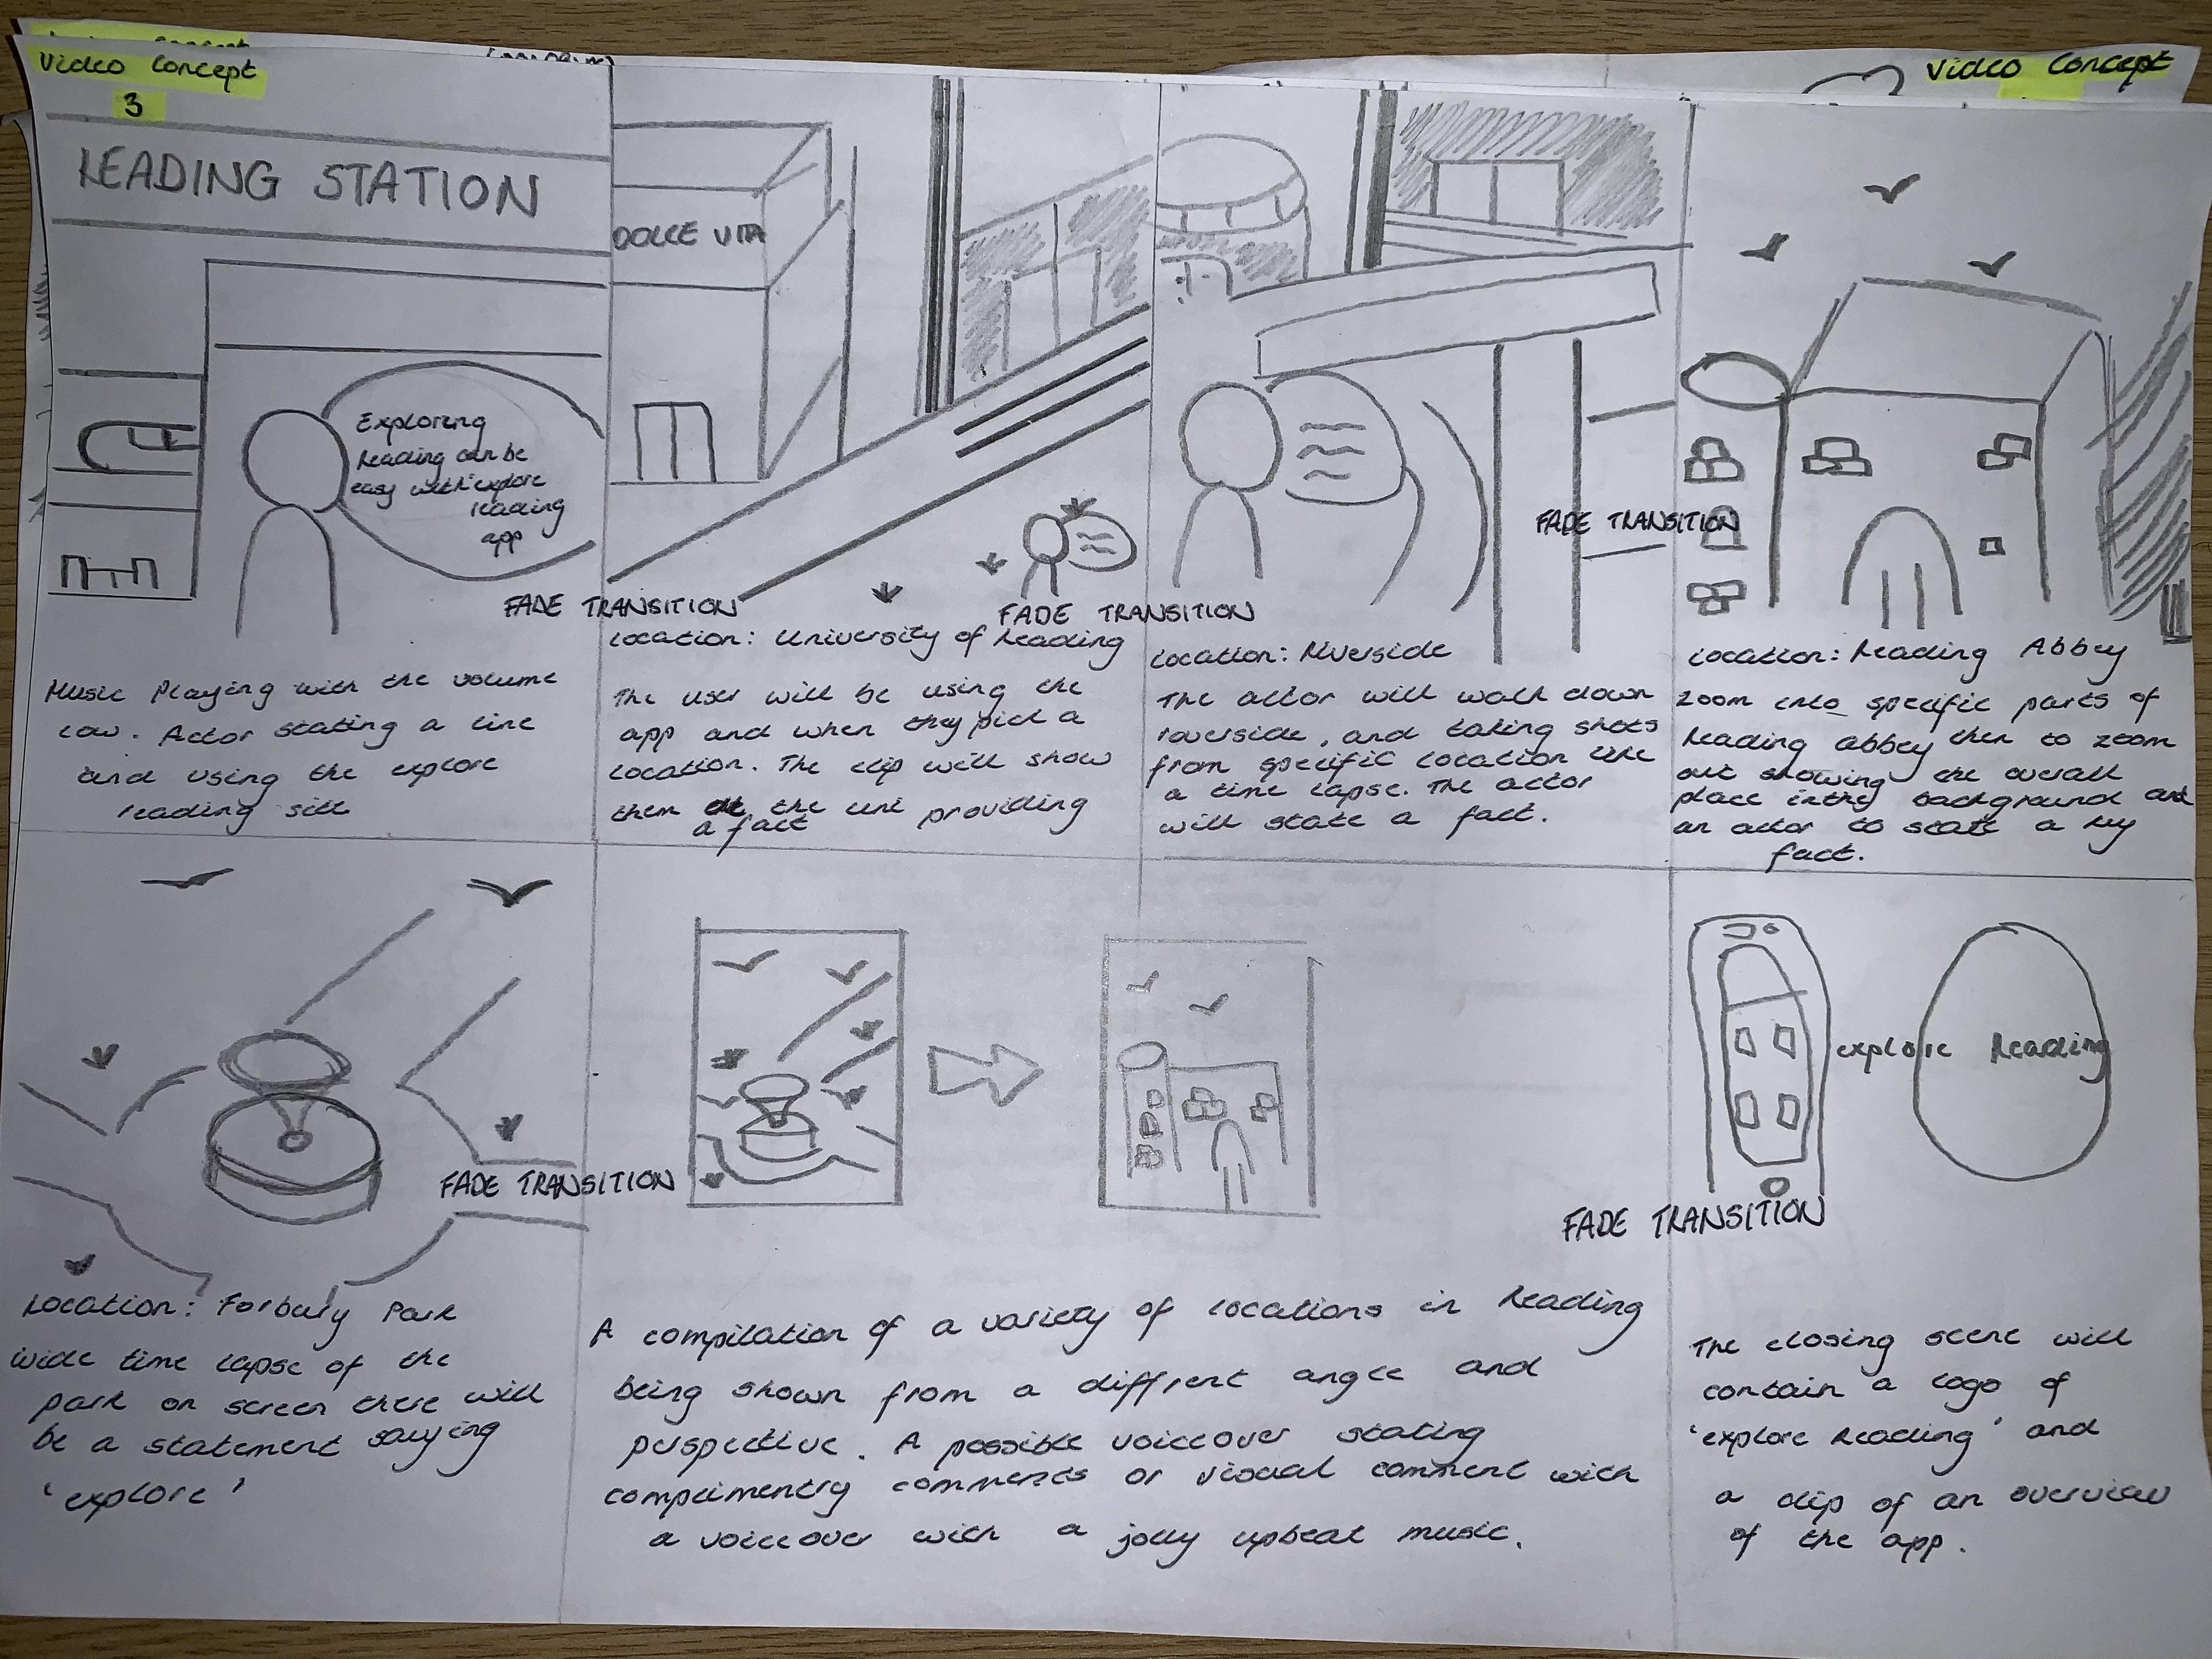 Video Concept
3
Video Concept
READING STATION
Exploring
Reading can be
easy with 'explore
reading
app
FADE TRANSITION
Music playing with the volume
low. Actor stating a line
and using the explore
reading site
DOLCE VITA
FADE TRANSITION
Location: University of Reading
The user will be using the
app and when they pick a
location. The clip will show
them at the uni providing
a fact
FADE TRANSITION
Location: Riverside
The actor will walk down
riverside, and taking shots
from specific location like
a time lapse. The actor
will state a fact.
Location: Reading Abbey
Zoom into specific parts of
Reading abbey then to zoom
out showing the overall
place in the background and
an actor to state a key
fact.
FADE TRANSITION
Location: Forbury Park
Wide time lapse of the
park on screen there will
be a statement saying
'explore'
FADE TRANSITION
A compilation of a variety of locations in Reading
being shown from a diffrent angle and
perspective. A possible voiceover stating
complimentry comments or visual comment with
a voiceover with a jolly upbeat music.
explore Reading
The closing scene will
contain a logo of
'explore Reading' and
a clip of an overview
of the app.